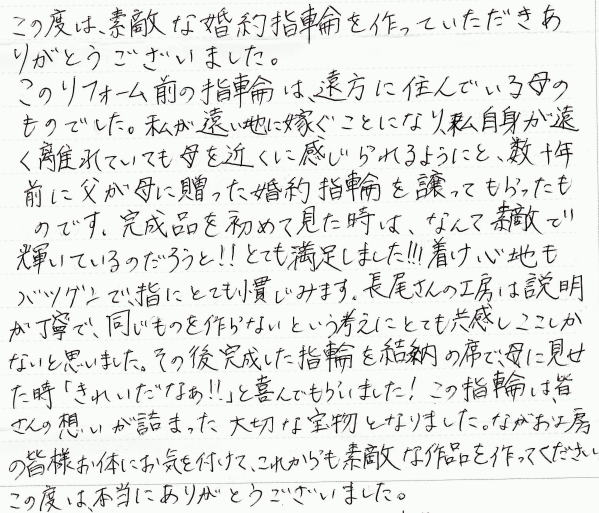 この度は、素敵な婚約指輪を作っていただきあ
りがとうございました。
このリフォーム前の指輪は、遠方に住んでいる母の
ものでした。私が遠い地に嫁ぐことになり、私自身が遠
く離れていても母を近くに感じられるようにと、数十年
前に父が母に贈った婚約指輪を譲ってもらったも
のです。完成品を初めて見た時は、なんて素敵で
輝いているのだろうと!!とても満足しました!!!着け心地も
バツグンで、指にとても慣じみます。長尾さんの工房は説明
が丁寧で、同じものを作らないという考えにとても共感しここしか
ないと思いました。その後完成した指輪を結納の席で、母に見せ
た時「きれいだなぁ!!」と喜んでもらいました!この指輪は、皆
さんの想いが詰まった大切な宝物となりました。ながお工房
の皆様お体にお気を付けて、これからも素敵な作品を作ってください
この度は、本当にありがとうございました。